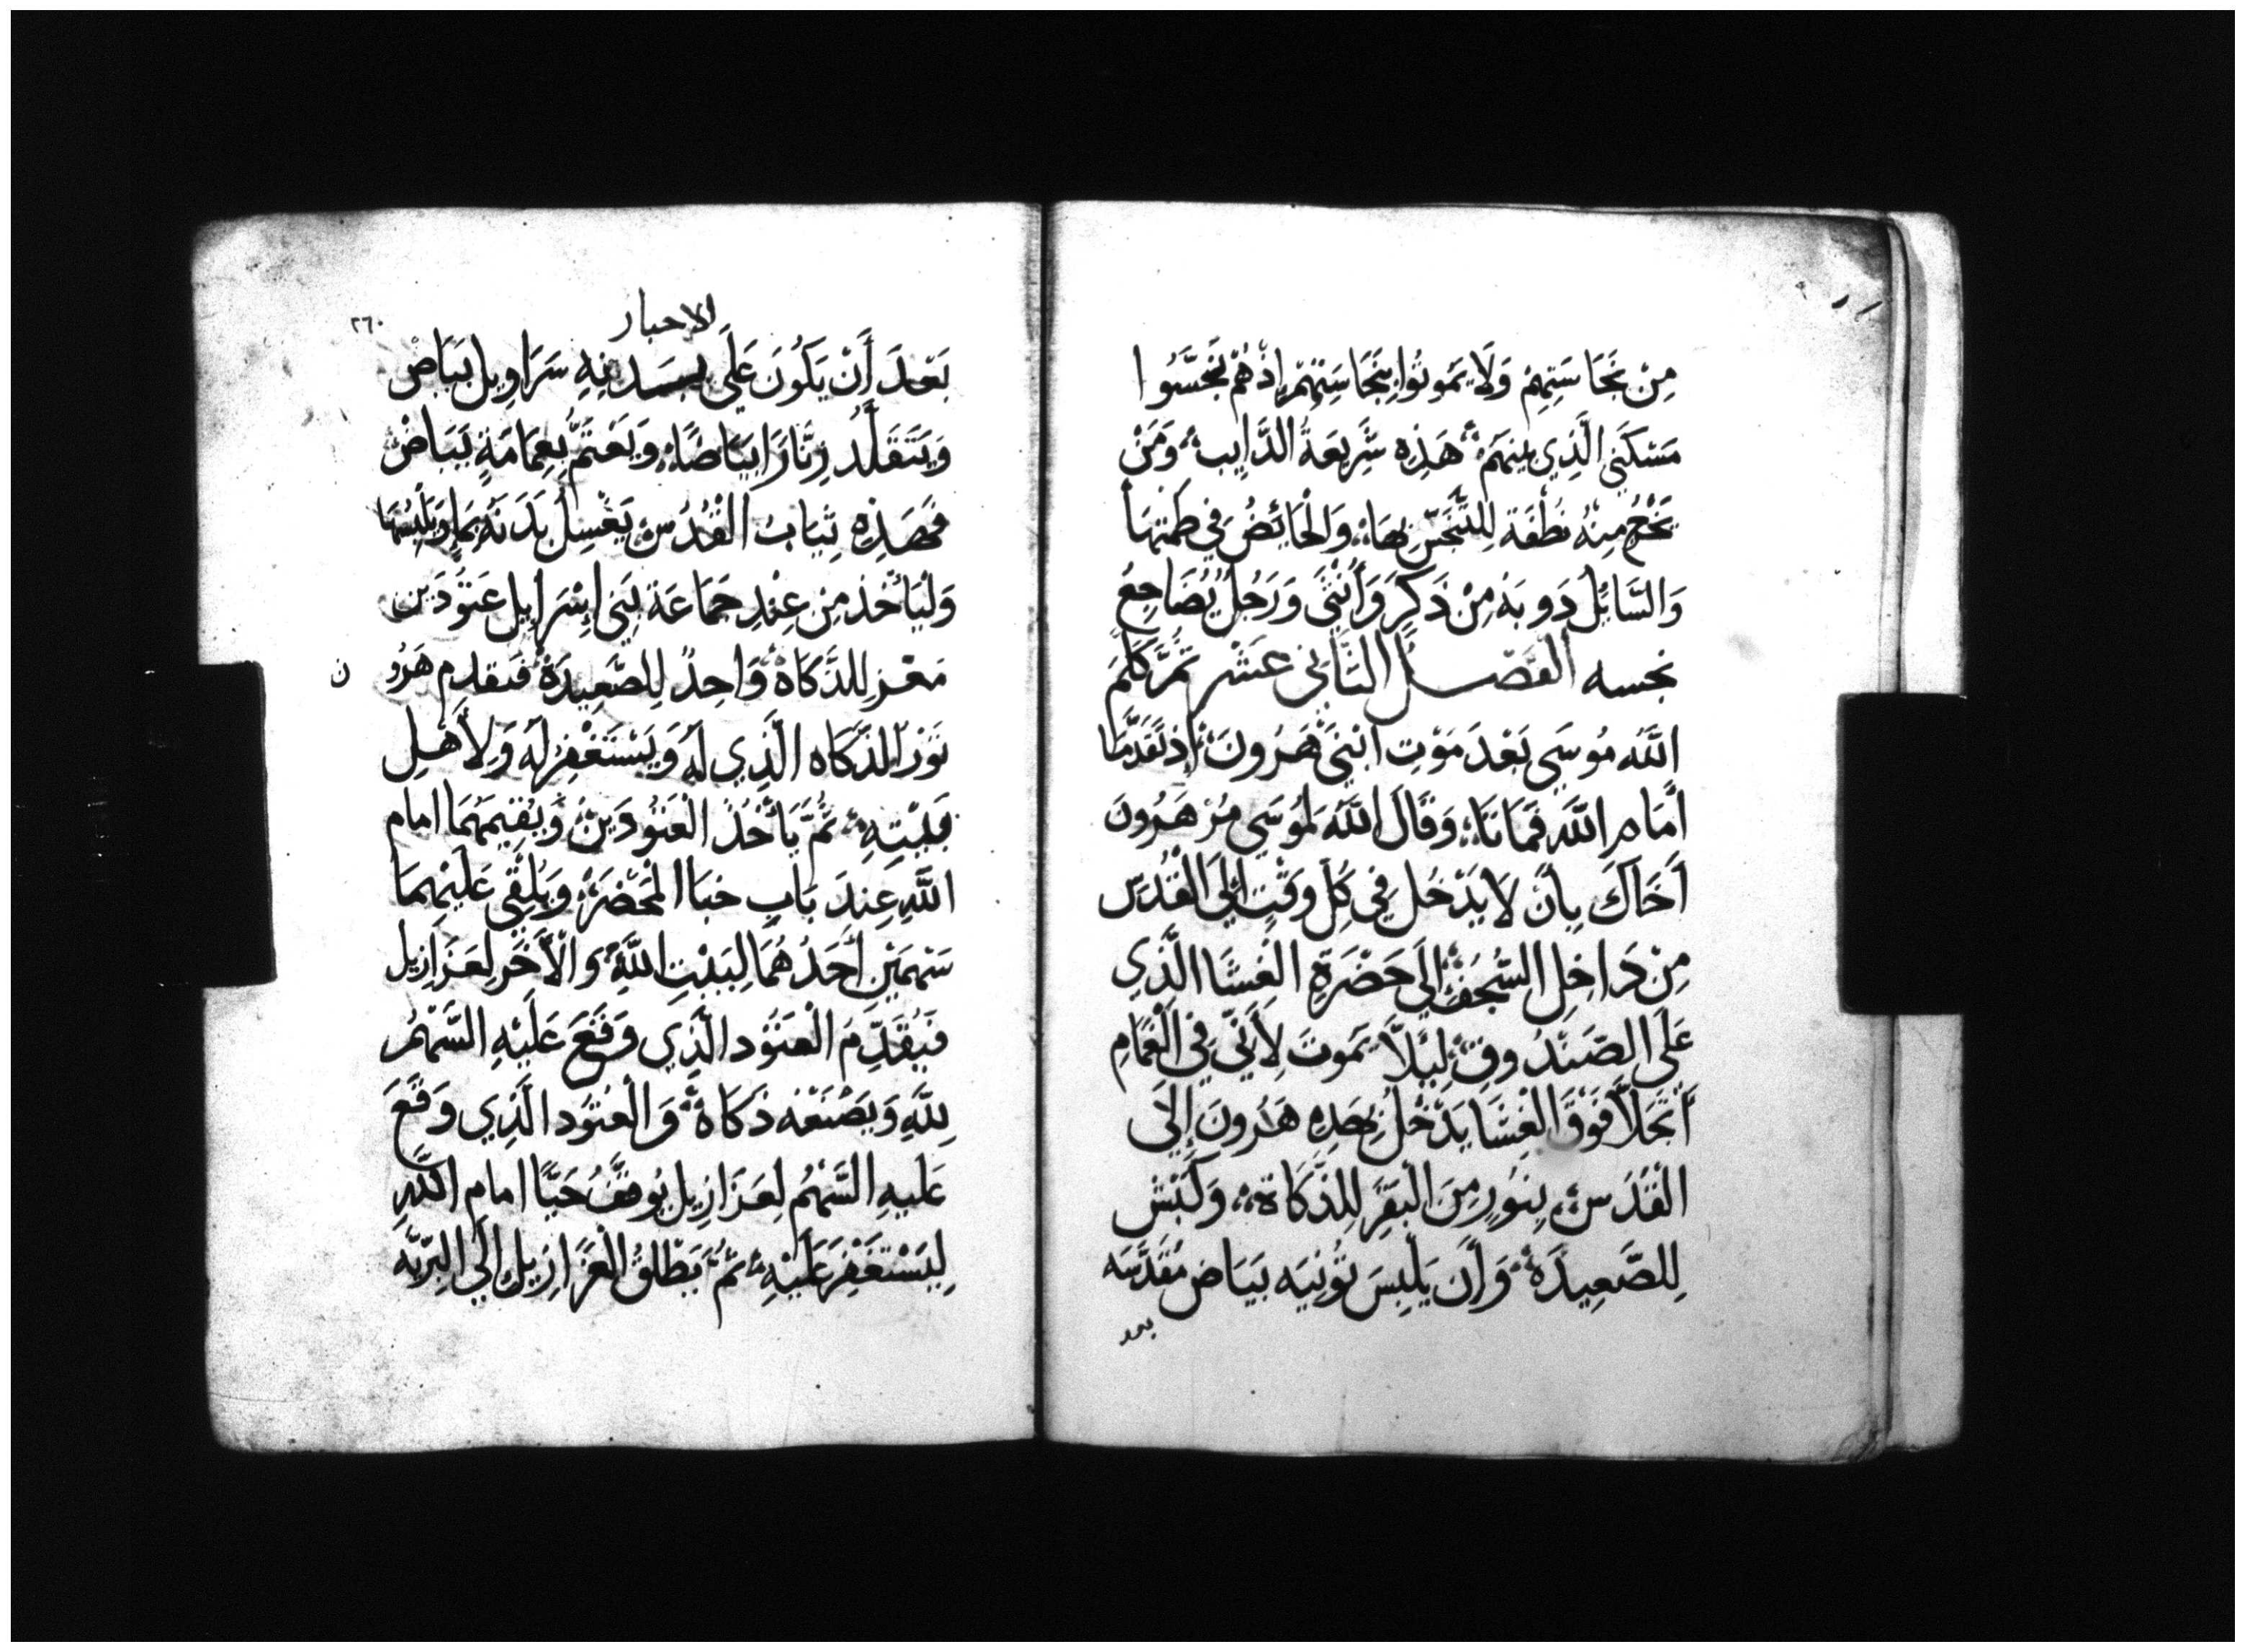 مِنْ نَجَاسَتِهِمْ وَلَا يَمُوتُوا بِنَجَاسَتِهِمْ إِذْ هُمْ نَجَّسُوا
مَسْكَنِي الَّذِي بينهم هَذِهِ شَرِيعَةُ الذَّايب وَمَنْ
يَخْرُج مِنْهُ نُطْفَة لِلتَّنَجُّسِ بِهَا وَالْحَائِضُ فِي طَمْثِهَا
وَالسَّائِلُ دَوبَهُ مِنْ ذَكَرٍ وَأُنْثَى وَرَجُلٌ يُضَاجِعُ
نجسه الفصل الثاني عشر ثُمَّ كَلَّمَ
اللَّهُ مُوسَى بَعْدَ مَوْتِ ابْنَيْ هَرُونَ إِذْ تَقَدَّمَا
أَمَام اللَّهِ فَمَاتَا وَقَالَ اللَّهُ لِمُوسَى مُرْ هَرُونَ
أَخَاكَ بِأَن لَا يَدْخُل فِي كُلِّ وَقْتٍ إِلَى الْقُدْسِ
مِنْ دَاخِلِ السُّجُفِ إِلَى حَضْرَةِ الْغِشَا الَّذِي
عَلَى الصَّنْدُوقِ لِئَلَّا يَمُوتَ لِأَنِّي فِي الْغَمَامِ
أَتَجَلَّا فَوْقَ الْغِشَا يَدْخُلُ بِهَذِهِ هَرُونَ إِلَى
الْقُدْسِ بِثَوْرٍ مِنَ الْبَقَرِ لِلذَّكَاة وَكَبْش
لِلصَّعِيدَةِ وَأَن يَلْبِسَ تُونِيَه بَيَاض مُقَدَّسَه
بعد
الاحبار
٢٦٠
بَعْدَ أَنْ يَكُونَ عَلَى بدنِهِ سَرَاوِيل بَيَاض
وَيَتَقَلَّدُ زِنَّارًا بَيَاضًا وَيَعْتَمُّ بِعِمَامَةٍ بَيَاض
فَهَذِهِ ثِيَابُ الْقُدْسِ يَغْسِلُ بَدَنَهُ بِمَا وَيَلْبِسُهَا
وَلْيَأْخُذ مِن عِنْدِ جَمَاعَة بَنِي إِسْرَايِل عَتُودَين
مَعْز لِلذَّكَاة وَاحِدٌ لِلصَّعِيدَةِ فيقدم هَرُو
ن
ثَوْر الذَّكَاه الَّذِي لَهُ وَيَسْتَغْفِرُ لَهُ وَلِأَهْلِ
بَيْتِهِ ثُمَّ يَأْخُذُ الْعَتُودَينِ وَيُقِيمُهُمَا امام
اللَّهِ عِندَ بَابِ خبَا الْمَحْضَرِ وَيُلْقِي عَلَيْهِمَا
سَهْمَيْنِ أَحَدُهُمَا لِبَيْتِ اللَّهِ وَالْآخَر لِعَزَازِيل
فَيُقَدِّمُ الْعَتُود الَّذِي وَقَعَ عَلَيْهِ السَّهْمُ
لِلَّهِ وَيَصْنَعْهُ ذَكَاةً وَالْعَتُود الَّذِي وَقَعَ
عَلَيهِ السَّهْمُ لِعَزَازِيل يُوقَفُ حَيًّا امام اللَّهِ
لِيَسْتَغْفِرَ عَلَيْهِ ثُمَّ يَطْلِقُ الْعَزَازِيل إِلَى الْبَرِّيَّه